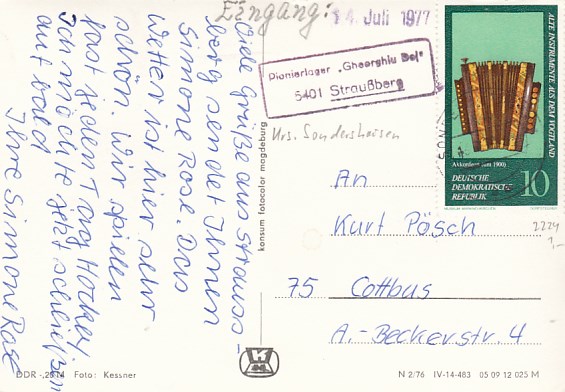 Eingang: 14. Juli 1977
Viele Grüße aus Strauss-
berg sendet Ihnen
Simone Rose. Das
Wetter ist hier sehr
schön. Wir spielen
fast jeden Tag Hockey.
Ich möchte jetzt schließen
auf bald
Ihre Simone Rose
Pionierlager „Gheorghiu Dej"
5401 Straußberg
Krs. Sondershausen
konsum fotocolor magdeburg
ALTE INSTRUMENTE AUS DEM VOGTLAND
Akkordeon (um 1900)
DEUTSCHE
DEMOKRATISCHE
REPUBLIK
10
An
Kurt Pösch
75 Cottbus
A.-Beckerstr. 4
2224
1,-
DDR - 2814 Foto: Kessner
N 2/76 IV-14-483 05 09 12 025 M